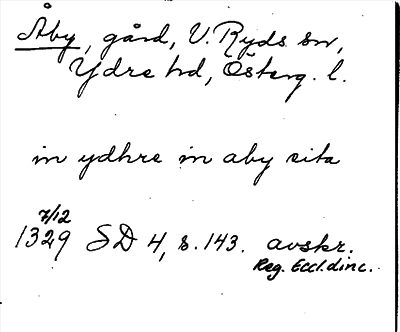 Åby, gård, V. Ryds sn,
Ydre hd, Österg. l.
in ydhre in aby sita
7/12
1329 SD 4, s. 143. avskr.
Reg. Eccl. dinc.